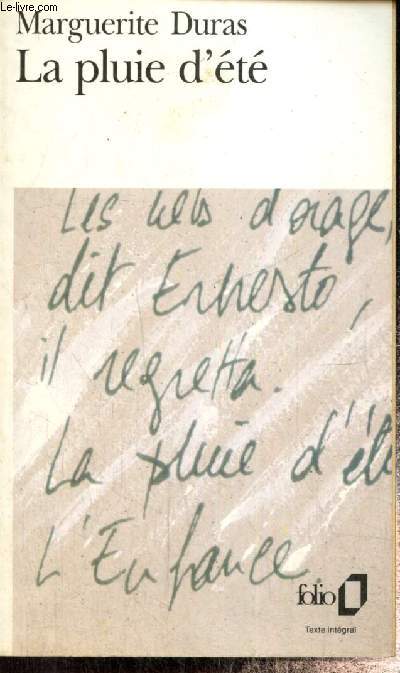 Le-livre.com
Marguerite Duras
La pluie d'été
Les ciels d'orage,
dit Ernesto,
il regretta.
La pluie d'ét
L'Enfance
folio
Texte intégral